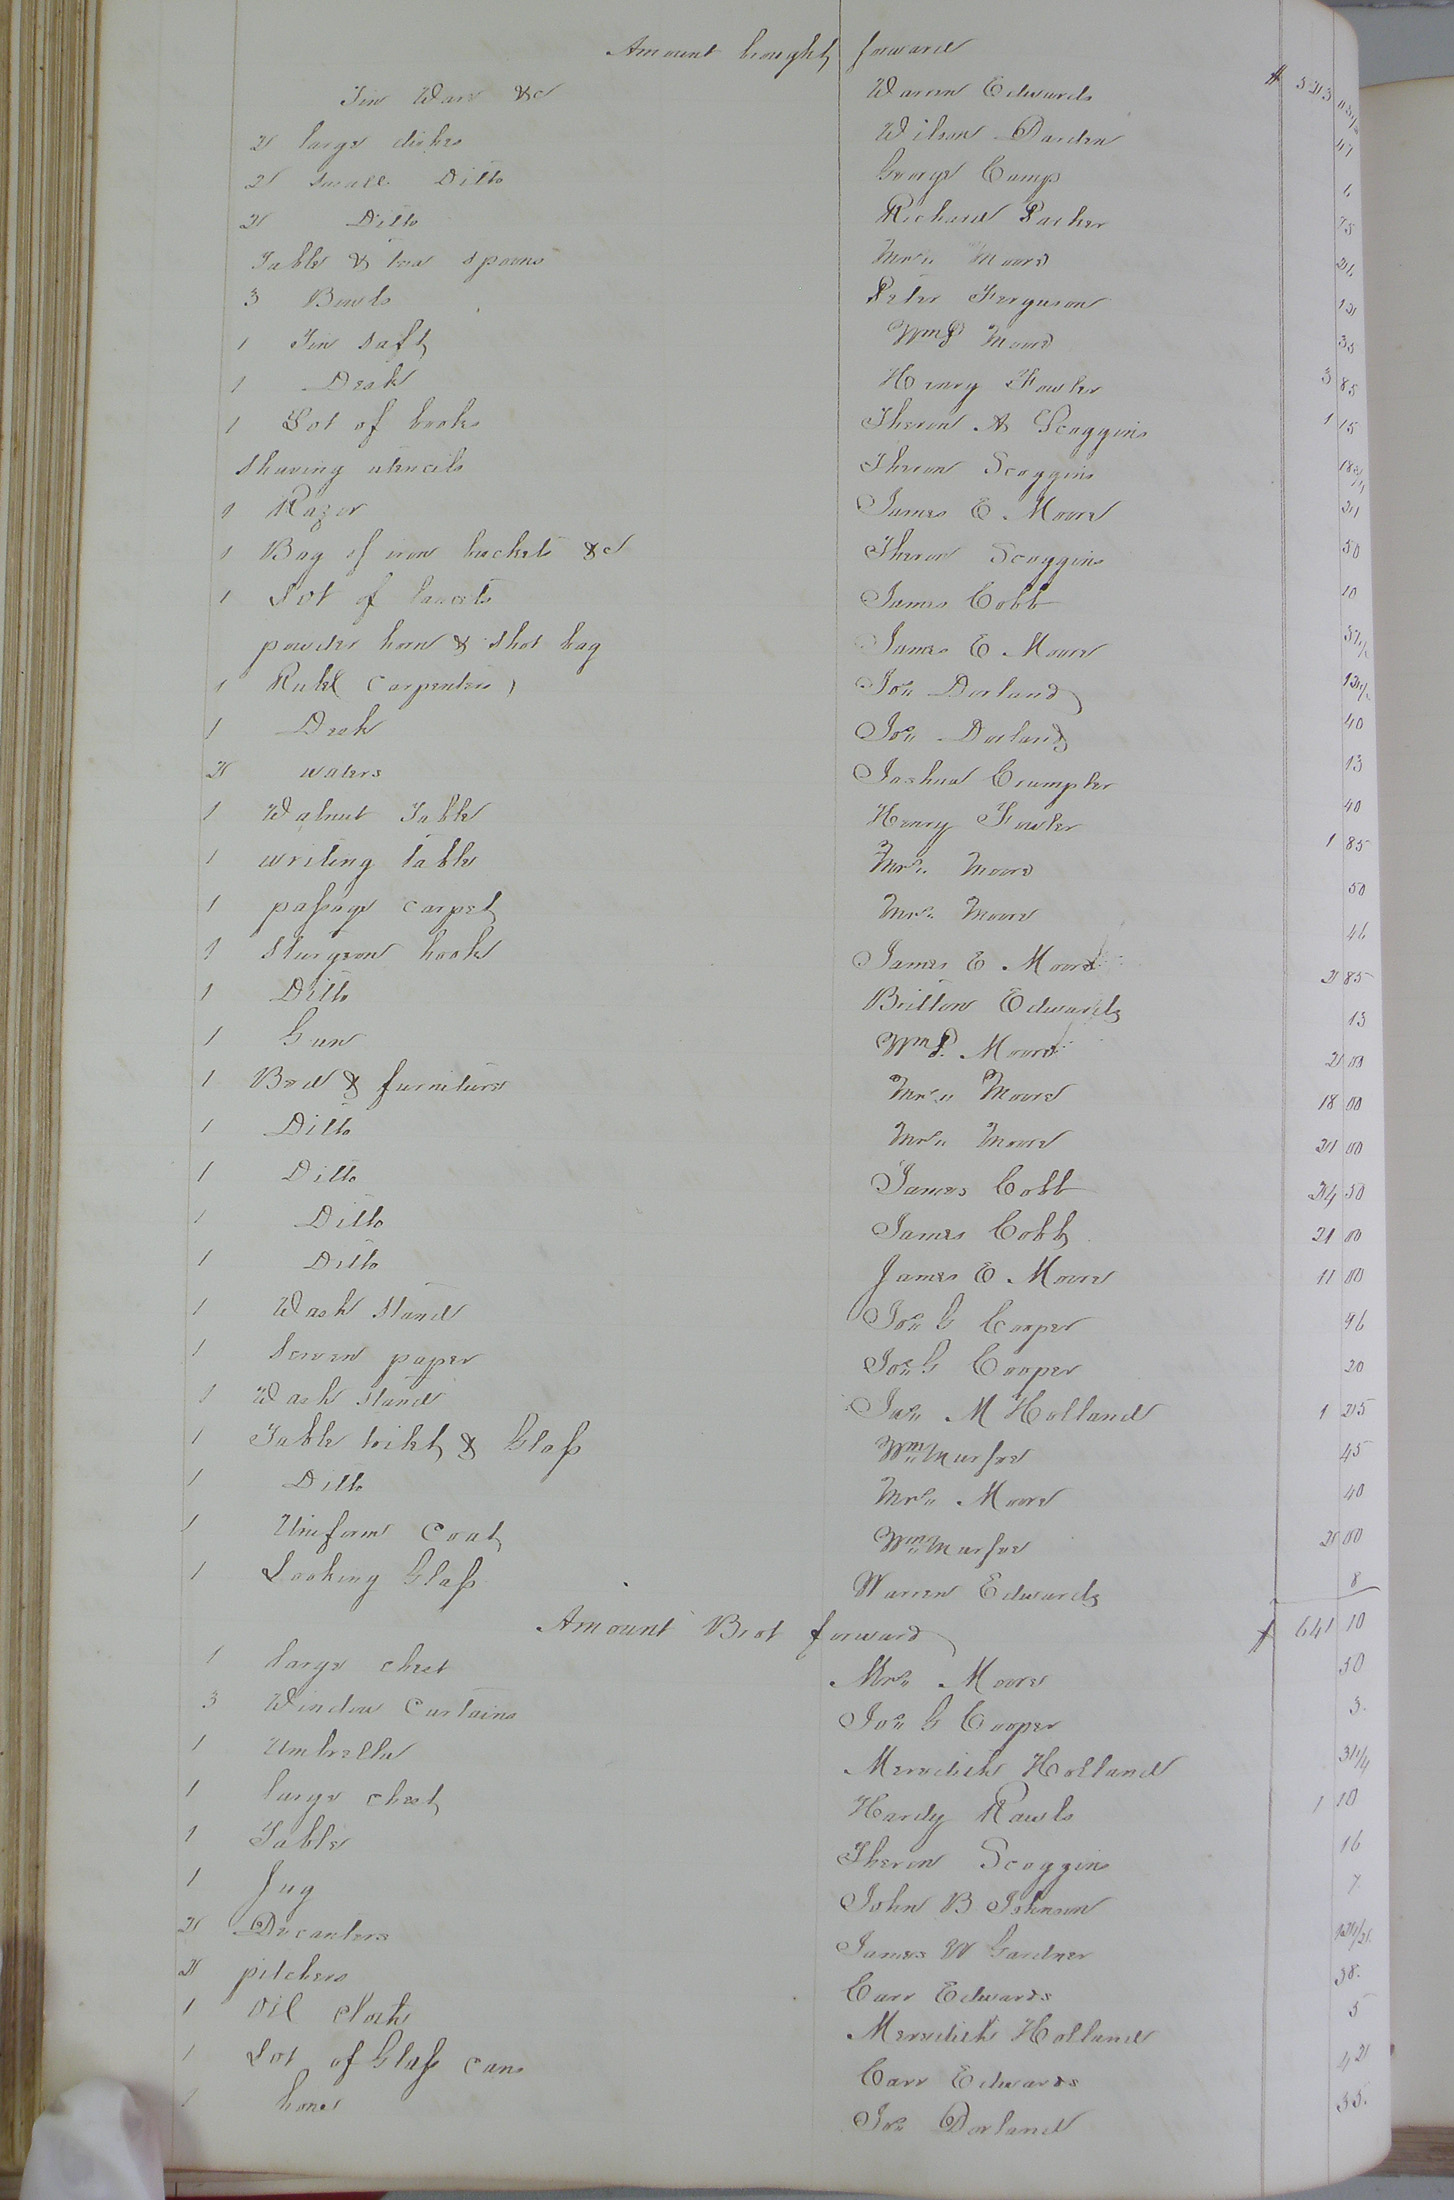 Amount brought forward
Tin Ware &c Warren Edwards $ 523
2 large dishes Wilson Darden 47
2 small Ditto George Camp 6
2 Ditto Richard Parker 75
Table & tea spoons Mrs. Moore 26
3 Bowls Peter Ferguson 12
1 Tin Saft Wm P Moore 35
1 Desk Henry Fowler 3 85
1 Lot of books Theron A Scoggins 1 15
Shaving utencils Theron Scoggins 18 3/4
1 Razor James E Moore 21
1 Bag of iron buckets &c Theron Scoggins 50
1 Lot of lancets James Cobb 10
powder horn & shot bag James E Moore 37 1/2
1 Rule Carpenters Jos. Dorland 12 1/2
1 Desk Jos. Dorland 40
2 waters Joshua Crumpler 13
1 Walnut Table Henry Fowler 40
1 writing table Mrs. Moore 1 85
1 passage carpet Mrs. Moore 50
1 Sturgeon hook James E Moore 46
1 Ditto Britton Edwards 2 85
1 Gun Wm P. Moore 13
1 Bed & furniture Mrs. Moore 2 00
1 Ditto Mrs. Moore 18 00
1 Ditto James Cobb 21 00
1 Ditto James Cobb 24 50
1 Ditto James E Moore 21 00
1 Wash Stand Jos. G Cooper 11 00
1 Screen paper Jos. G Cooper 96
1 Wash Stand Jas. M Holland 20
1 Table & Glass Wm. Murfee 1 25
1 Ditto Mrs. Moore 45
1 Uniform Coat Wm. Murfee 40
1 Looking Glass Warren Edwards 2 00
8
Amount Brot forward $ 641 10
1 large chest Mrs. Moore 50
3 Window Curtains Jos. G Cooper 5.
1 Umbrella Meredith Holland 31 1/4
1 large chest Hardy Rawls 1 10
1 Table Theron Scoggins 16
1 Jug John B Johnson 7.
2 Decanters James W Gardner 12 1/2
2 pitchers Carr Edwards 38.
1 Oil Cloth Meredith Holland 5
1 Lot of Glass cans Carr Edwards 42
1 hone Jos. Dorland 35.